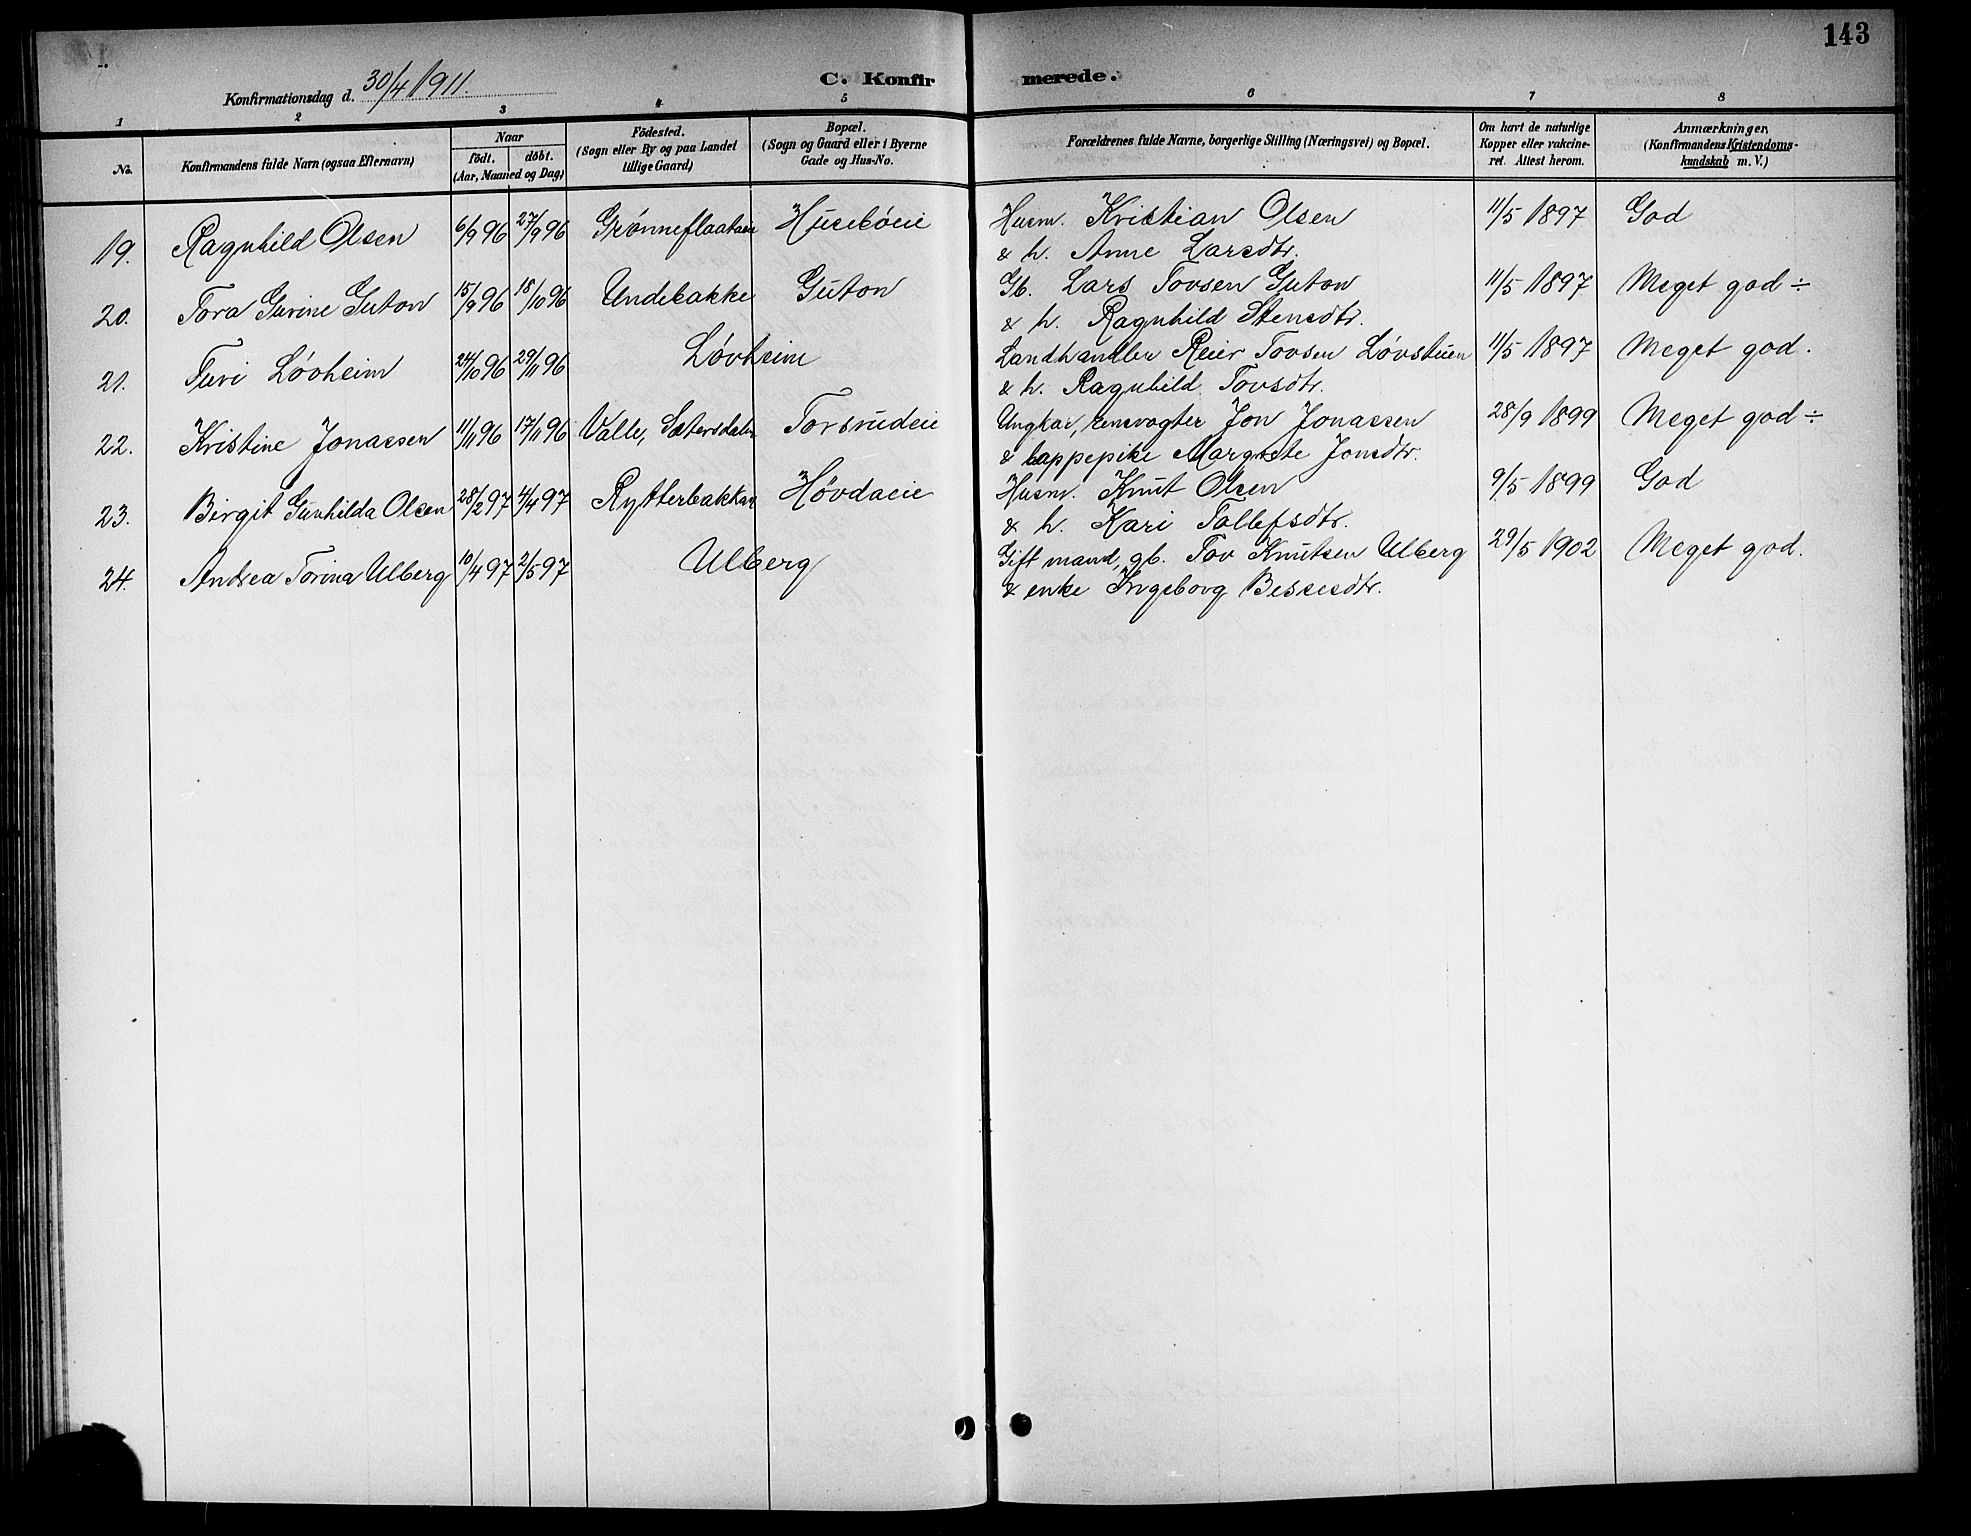 143
Konfirmationsdag d. 30/4 1911.
C. Konfirmerede.
1 2 3 4 5 6 7 8
No.
Konfirmandens fulde Navn (ogsaa Efternavn)
Naar
födt. döbt.
(Aar, Maaned og Dag)
Födested.
(Sogn eller By og paa Landet
tillige Gaard)
Bopæl.
(Sogn og Gaard eller i Byerne
Gade og Hus-No.
Forældrenes fulde Navne, borgerlige Stilling (Næringsvei) og Bopæl.
Om havt de naturlige
Kopper eller vakcine-
ret. Attest herom.
Anmærkninger,
(Konfirmandens Kristendoms-
kundskab m. V.)
19. Ragnhild Olsen 6/9 96 27/9 96 Grønneflaataeie Husebøeie Husm. Kristian Olsen 11/5 1897 God
& h. Anne Larsdtr.
20. Tora Gurine Guton 15/9 96 18/10 96 Undebakke Guton Gb. Lars Tovsen Guton 11/5 1897 Meget god ÷
& h. Ragnhild Stensdtr.
21. Turi Løvheim 24/10 96 29/11 96 Løvheim Landhandler Reier Tovsen Løvstuen 11/5 1897 Meget god.
& h. Ragnhild Tovsdtr.
22. Kristine Jonassen 11/11 96 17/11 96 Valle, Sætersdalen Torsrudeie Ungkar, rensvogter Jon Jonassen 28/9 1899 Meget god ÷
& lappepike Margrete Jonsdtr.
23. Birgit Gunhilda Olsen 28/2 97 4/4 97 Rytterbakkan Høvdaeie Husm. Knut Olsen 9/5 1899 God
& h. Kari Tollefsdtr.
24. Andrea Torina Ulberg 10/4 97 2/5 97 Ulberg Gift mand, gb. Tov Knutsen Ulberg 29/5 1902 Meget god.
& enke Ingeborg Bessesdtr.